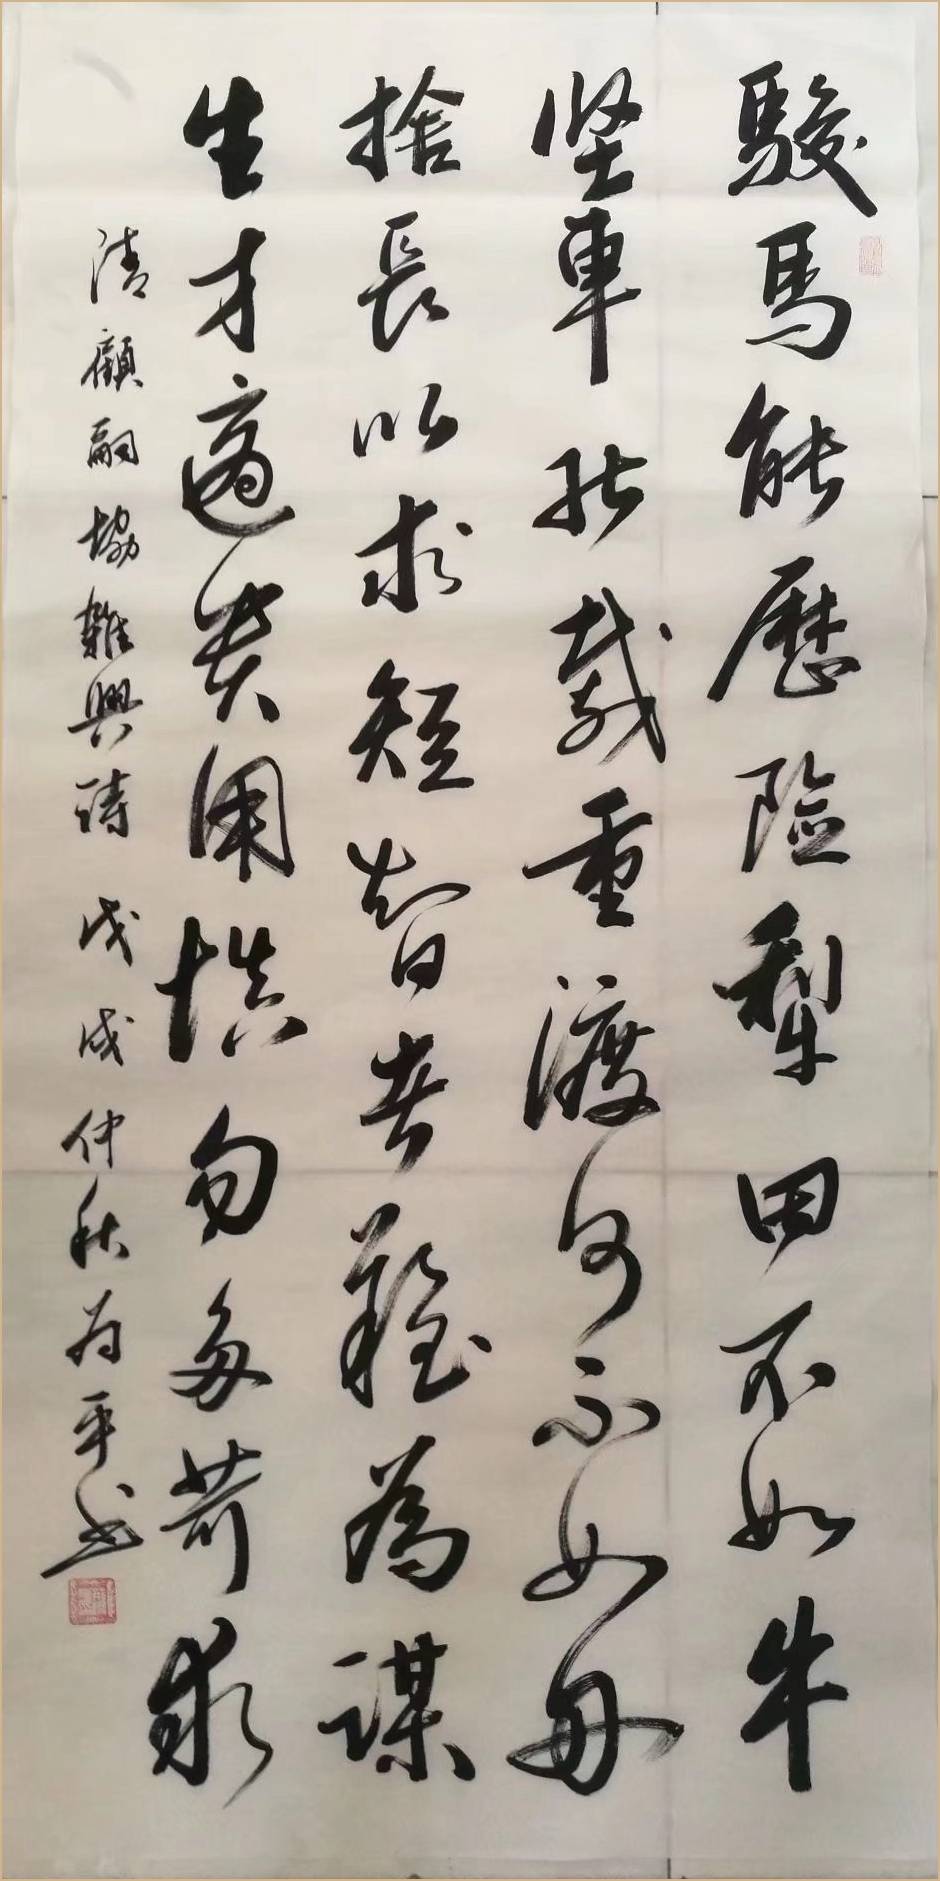 駿馬能歷險犁田不如牛
坚車能載重渡河不如舟
捨長以求短智者難為謀
生才適貴用慎勿多苛求
清顧嗣協雜興詩 戊戌仲秋為平书